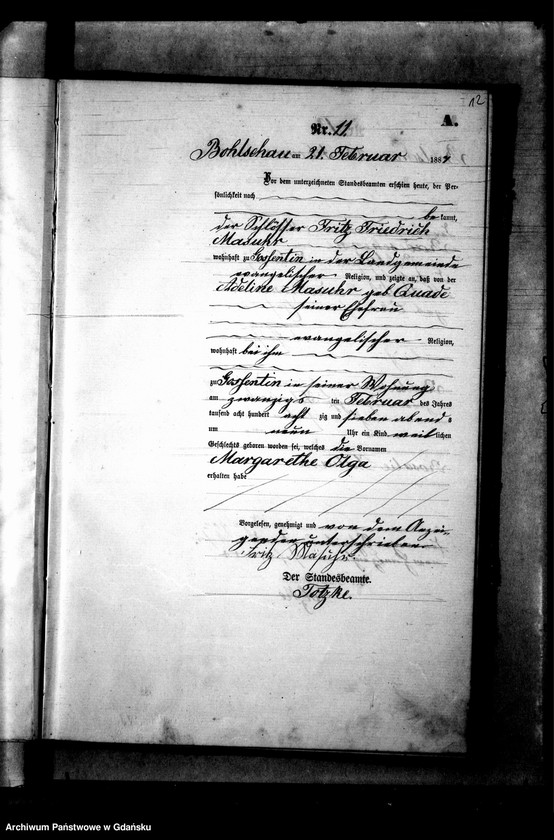 12
A.
Nr. 11
Bohlschau am 21. Februar 188
Vor dem unterzeichneten Standesbeamten erschien heute, der Per-
sönlichkeit nach
be kannt,
der Schlosser Fritz Friedrich
Masuhr
wohnhaft zu Gossentin in der Landgemeinde
evangelischer Religion, und zeigte an, daß von der
Adeline Masuhr geb Quade
seiner Ehefrau
evangelischer Religion,
wohnhaft bei ihm
zu Gossentin in seiner Wohnung
am zwanzigsten Februar des Jahres
tausend acht hundert acht zig und sieben abends
um neun Uhr ein Kind weiblichen
Geschlechts geboren worden sei, welches die Vornamen
Margarethe Olga
erhalten habe
Vorgelesen, genehmigt und von dem Anzei-
genden unterschrieben
Fritz Masuhr.
Der Standesbeamte.
Totzke.
Archiwum Państwowe w Gdańsku